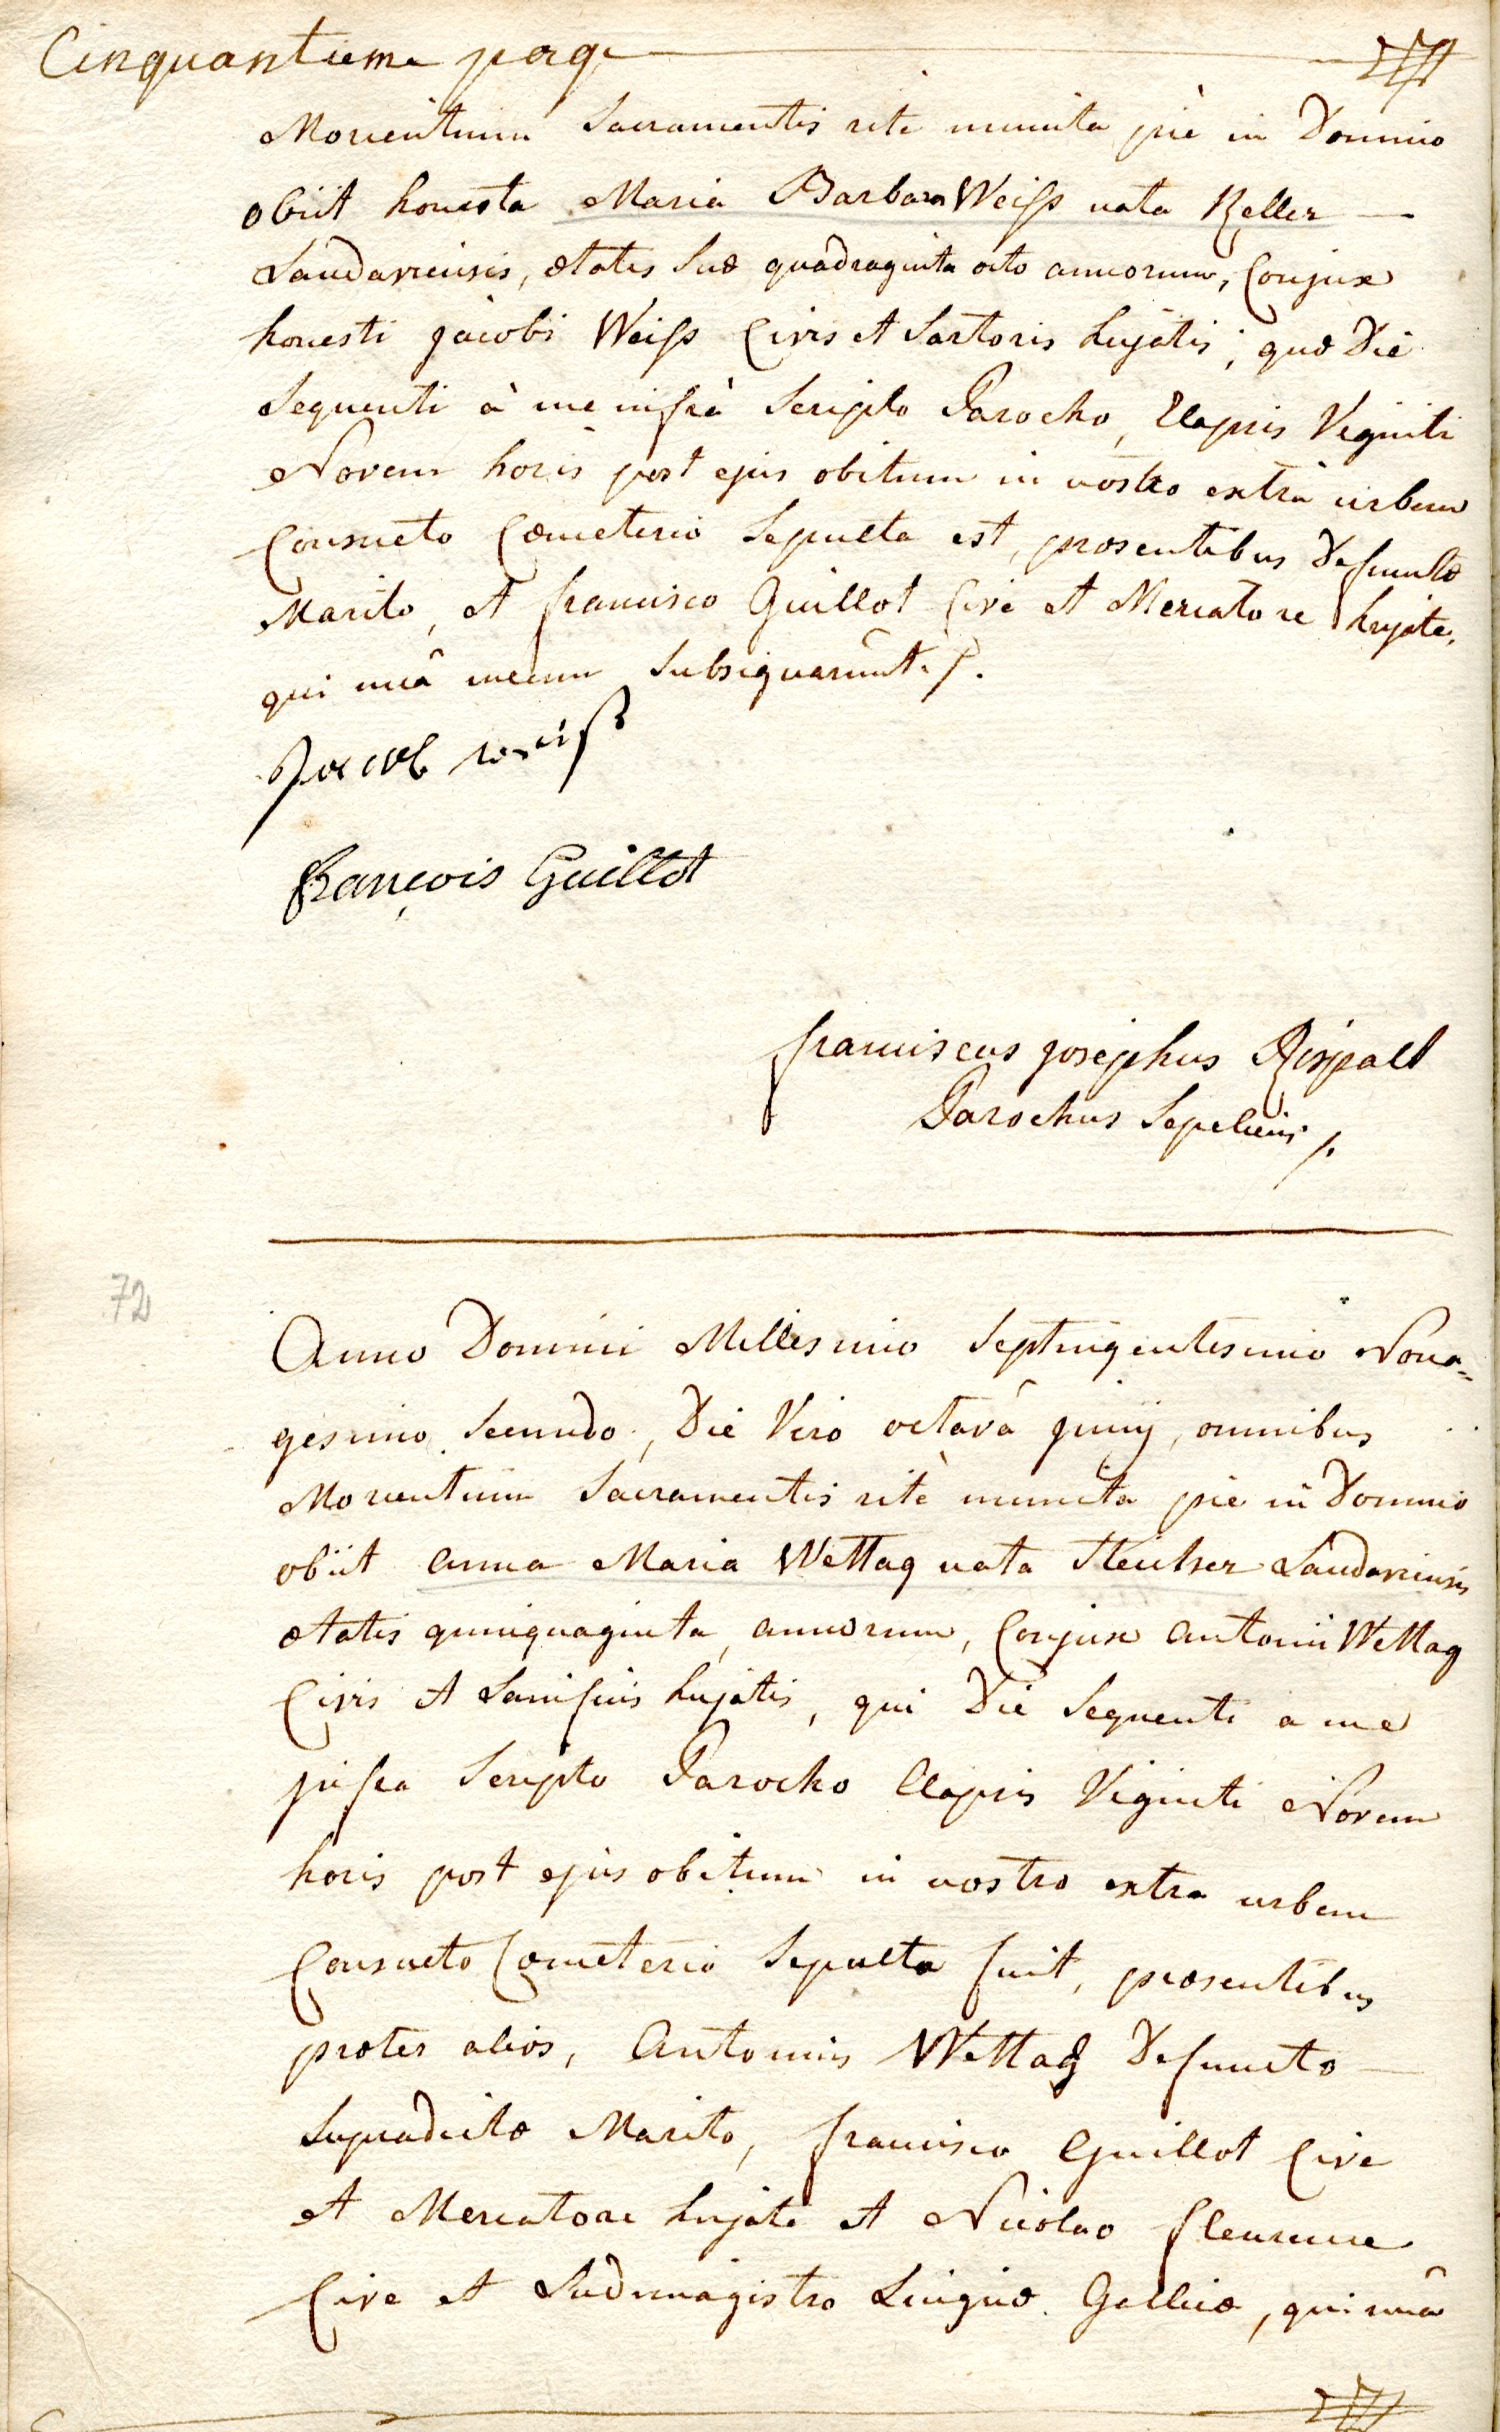 Cinquantieme page
Morientium Sacramentis rite munita piè in Domino
obiit honesta Maria Barbara Weiss nata Keller —
Landaviensis, ætatis suæ quadraginta octo annorum, Conjux
honesti jacobi Weiss Civis et Sartoris hujatis, quæ Die
Sequenti à me infrà Scripto Parocho, Elapsis Viginti
Novem horis post ejus obitum in nostro extrà urbem
Consueto Cœmeterio Sepulta est, præsentibus Defunctæ
Marito, et francisco Guillot Cive et Mercatore hujate,
qui unâ mecum Subsignarunt.
Jacob weiß
François Guillot
franciscus josephus Rispalt
Parochus Sepeliens
72
Anno Domini Millesimo Septingentesimo Nona=
gesimo Secundo, Die Vero octavâ junij, omnibus
Morientium Sacramentis ritè munita pie in Domino
obiit anna Maria Wettag nata Landaviensis
ætatis quinquaginta annorum, Conjux antonii Wettag
Civis et Lanificis hujatis, qui Die Sequenti a me
jnfra Scripto Parocho Elapsis Viginti Novem
horis post ejus obitum in nostro extra urbem
Consueto Cœmeterio Sepulta fuit, præsentibus
præter alios, Antonius Wettag Defuncto —
Supradictæ Marito, francisco Guillot Cive
et Mercatore hujate et Nicolao fleurune
Cive et Ludimagistro Linguæ Gallicæ, qui unâ